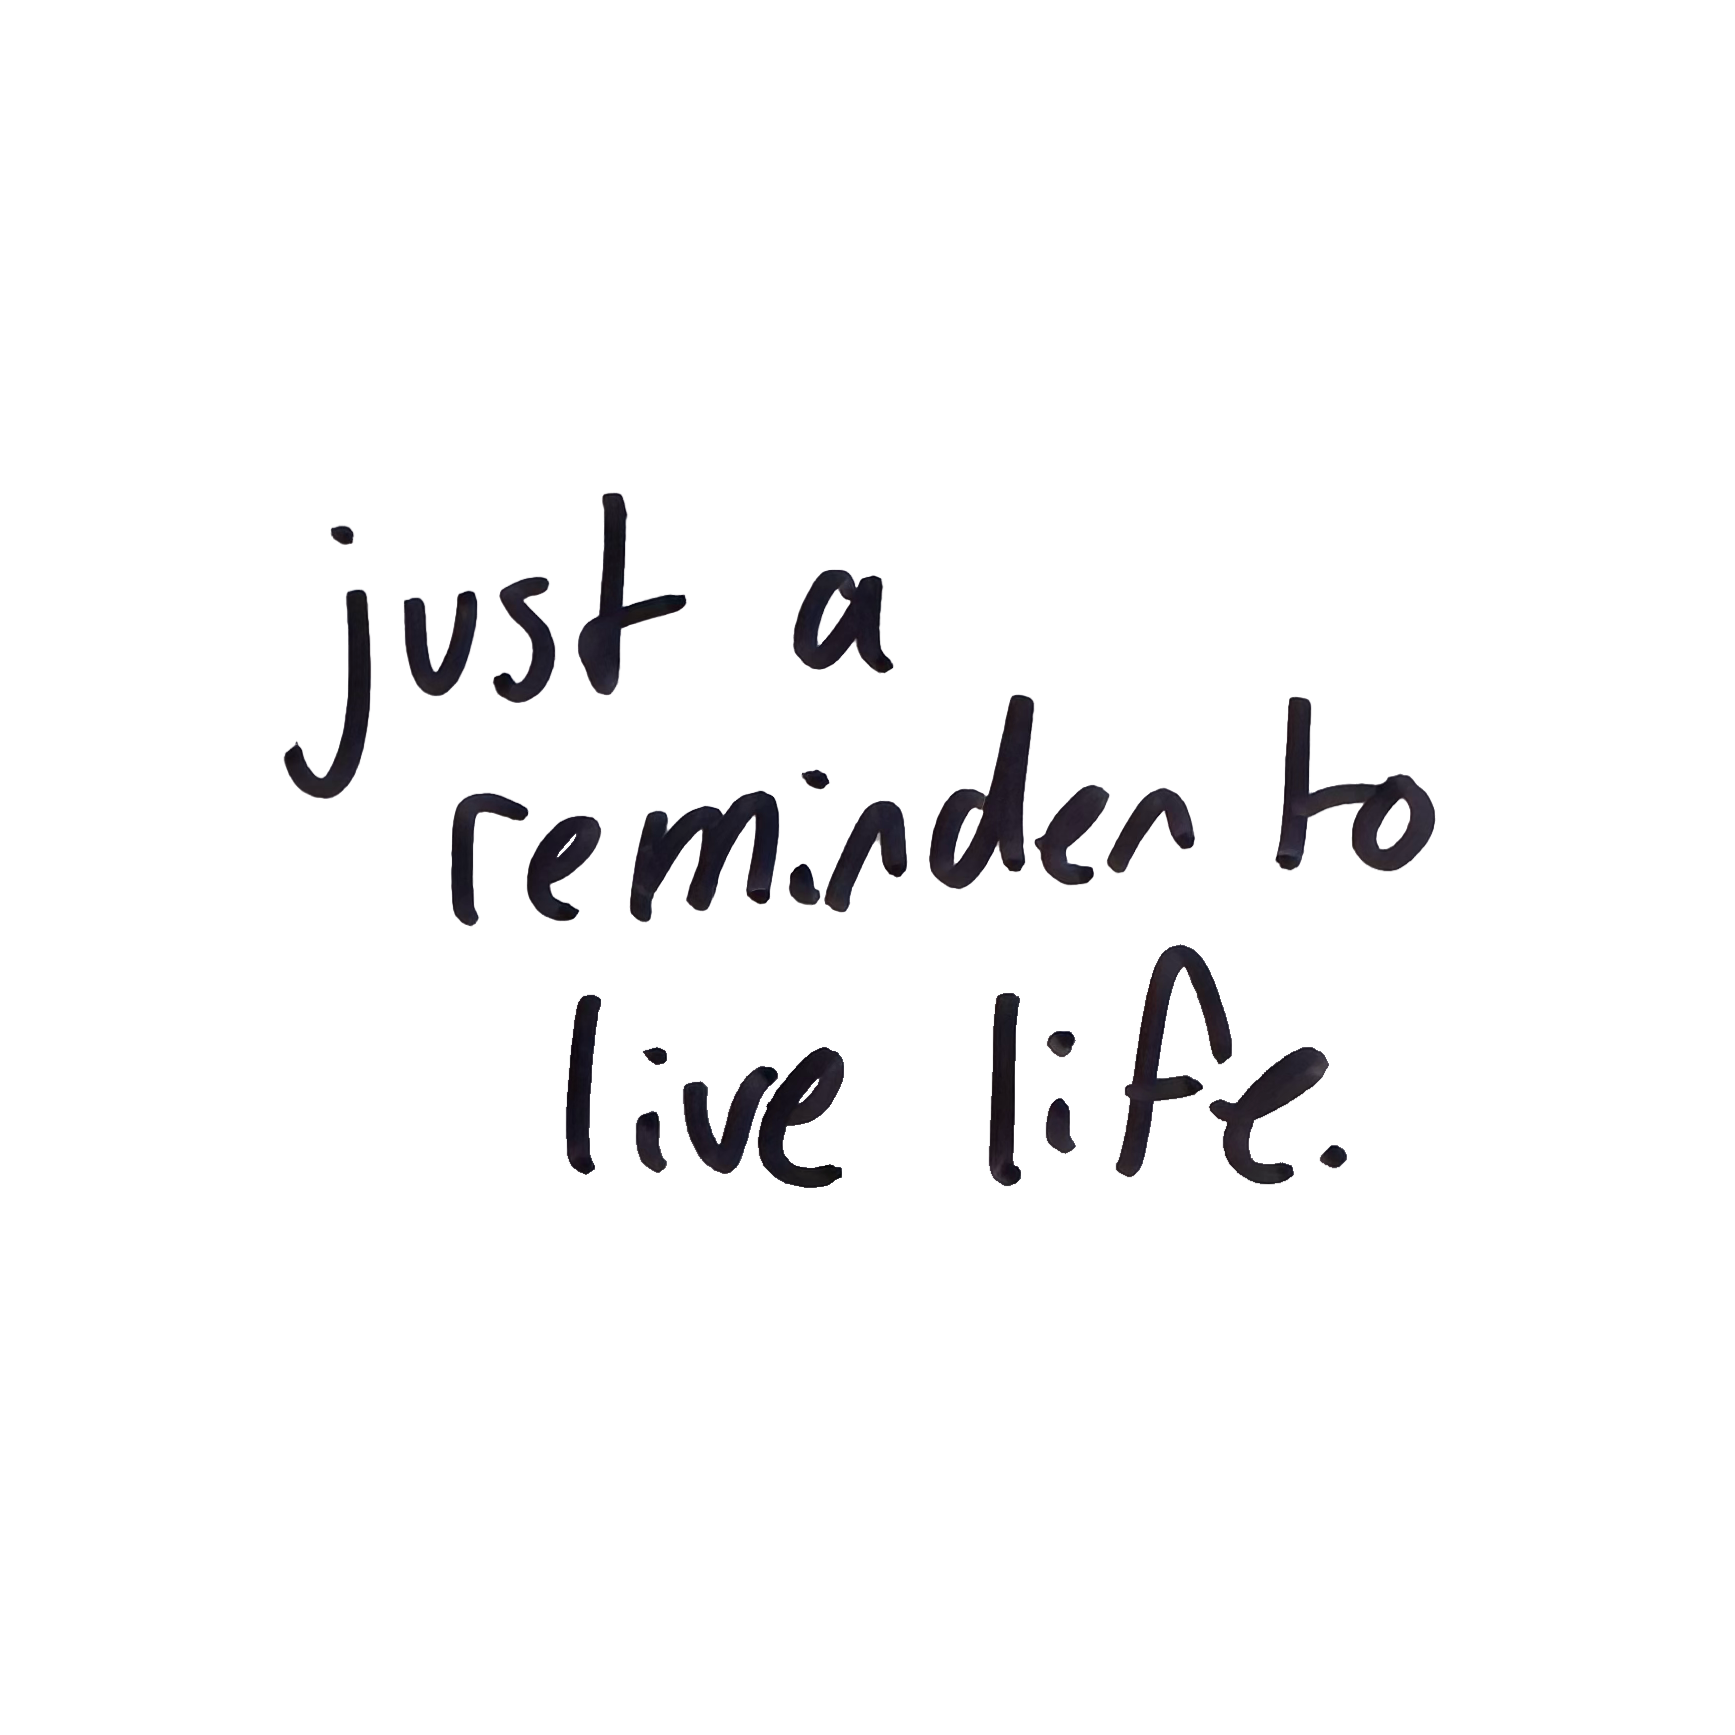 just a
reminder to
live life.